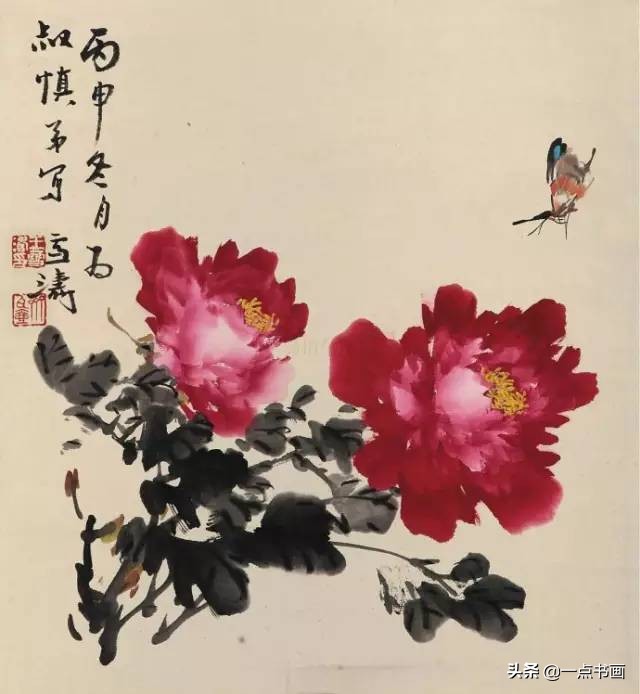 丙申冬月为
叔慎弟写 雪涛
头条 @一点书画